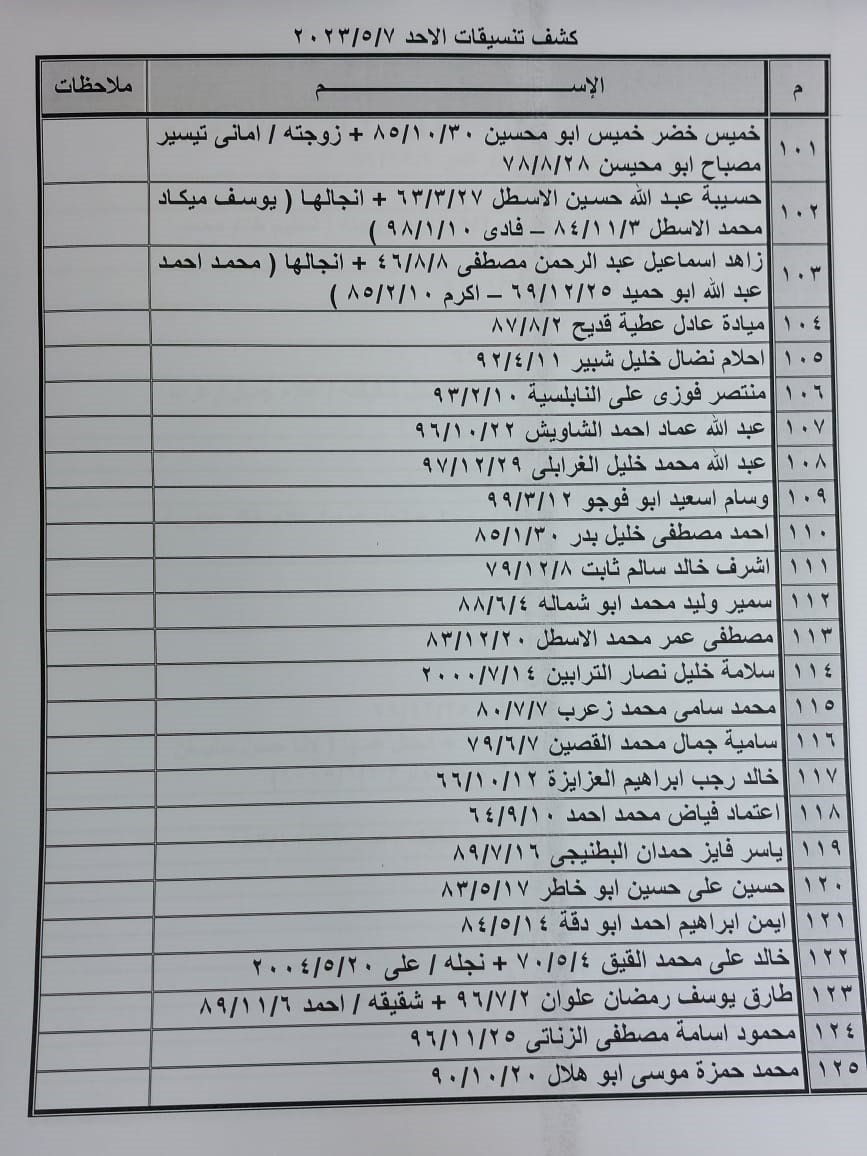 كشف تنسيقات الاحد ٢٠٢٣/٥/٧
م الإســـــــــــــــــــــــــم ملاحظات
١٠١ خميس خضر خميس ابو محسين ٨٥/١٠/٣٠ + زوجته / امانى تيسير
مصباح ابو محيسن ٧٨/٨/٢٨
١٠٢ حسيبة عبد الله حسين الاسطل ٦٣/٣/٢٧ + انجالها ( يوسف ميكاد
محمد الاسطل ٨٤/١١/٣ – فادى ٩٨/١/١٠ )
١٠٣ زاهد اسماعيل عبد الرحمن مصطفى ٤٦/٨/٨ + انجالها ( محمد احمد
عبد الله ابو حميد ٦٩/١٢/٢٥ – اكرم ٨٥/٢/١٠ )
١٠٤ ميادة عادل عطية قديح ٨٧/٨/٢
١٠٥ احلام نضال خليل شبير ٩٢/٤/١١
١٠٦ منتصر فوزى على النابلسية ٩٣/٢/١٠
١٠٧ عبد الله عماد احمد الشاويش ٩٦/١٠/٢٢
١٠٨ عبد الله محمد خليل الغرابلى ٩٧/١٢/٢٩
١٠٩ وسام اسعيد ابو فوجو ٩٩/٣/١٢
١١٠ احمد مصطفى خليل بدر ٨٥/١/٣٠
١١١ اشرف خالد سالم ثابت ٧٩/١٢/٨
١١٢ سمير وليد محمد ابو شماله ٨٨/٦/٤
١١٣ مصطفى عمر محمد الاسطل ٨٣/١٢/٢٠
١١٤ سلامة خليل نصار الترابين ٢٠٠٠/٧/١٤
١١٥ محمد سامى محمد زعرب ٨٠/٧/٧
١١٦ سامية جمال محمد القصين ٧٩/٦/٧
١١٧ خالد رجب ابراهيم العزايزة ٦٦/١٠/١٢
١١٨ اعتماد فياض محمد احمد ٦٤/٩/١٠
١١٩ ياسر فايز حمدان البطنيجى ٨٩/٧/١٦
١٢٠ حسين على حسين ابو خاطر ٨٣/٥/١٧
١٢١ ايمن ابراهيم احمد ابو دقة ٨٤/٥/١٤
١٢٢ خالد على محمد القيق ٧٠/٥/٤ + نجله / على ٢٠٠٤/٥/٢٠
١٢٣ طارق يوسف رمضان علوان ٩٦/٧/٢ + شقيقه / احمد ٨٩/١١/٦
١٢٤ محمود اسامة مصطفى الزناتى ٩٦/١١/٢٥
١٢٥ محمد حمزة موسى ابو هلال ٩٠/١٠/٢٠